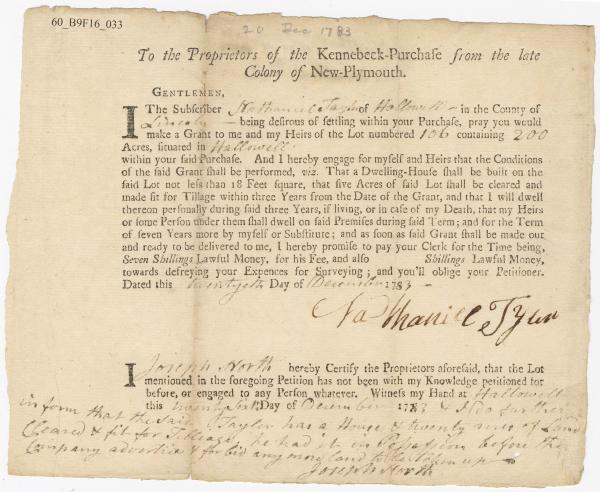 60_B9F16_033
20 Dec 1783
To the Proprietors of the Kennebeck-Purchaſe from the late
Colony of New-Plymouth.
GENTLEMEN,
I The Subſcriber Nathaniel Taylor of Hallowell in the County of
Lincoln being deſirous of ſettling within your Purchaſe, pray you would
make a Grant to me and my Heirs of the Lot numbered 106 containing 200
Acres, situated in Hallowell
within your ſaid Purchaſe. And I hereby engage for myſelf and Heirs that the Conditions
of the ſaid Grant ſhall be performed, viz. That a Dwelling-Houſe ſhall be built on the
ſaid Lot not leſs than 18 Feet ſquare, that five Acres of ſaid Lot ſhall be cleared and
made fit for Tillage within three Years from the Date of the Grant, and that I will dwell
thereon perſonally during ſaid three Years, if living, or in caſe of my Death, that my Heirs
or ſome Perſon under them ſhall dwell on ſaid Premiſes during ſaid Term; and for the Term
of ſeven Years more by myſelf or Subſtitute; and as ſoon as ſaid Grant ſhall be made out
and ready to be delivered to me, I hereby promiſe to pay your Clerk for the Time being,
Seven Shillings Lawful Money, for his Fee, and alſo Shillings Lawful Money,
towards defreying your Expences for Surveying; and you'll oblige your Petitioner.
Dated this twentyeth Day of December 1783
Nathaniel Tyler
I Joseph North hereby Certify the Proprietors aforeſaid, that the Lot
mentioned in the foregoing Petition has not been with my Knowledge petitioned for
before, or engaged to any Perſon whatever. Witneſs my Hand at Hallowell
this Day of December 1783 & I do further
inform that the said Taylor has a House & twenty acres of Land
Cleared & fit for Tilleage, he had it in Possession before the
Company advertise & forbid any more land to be taken up
Joseph North